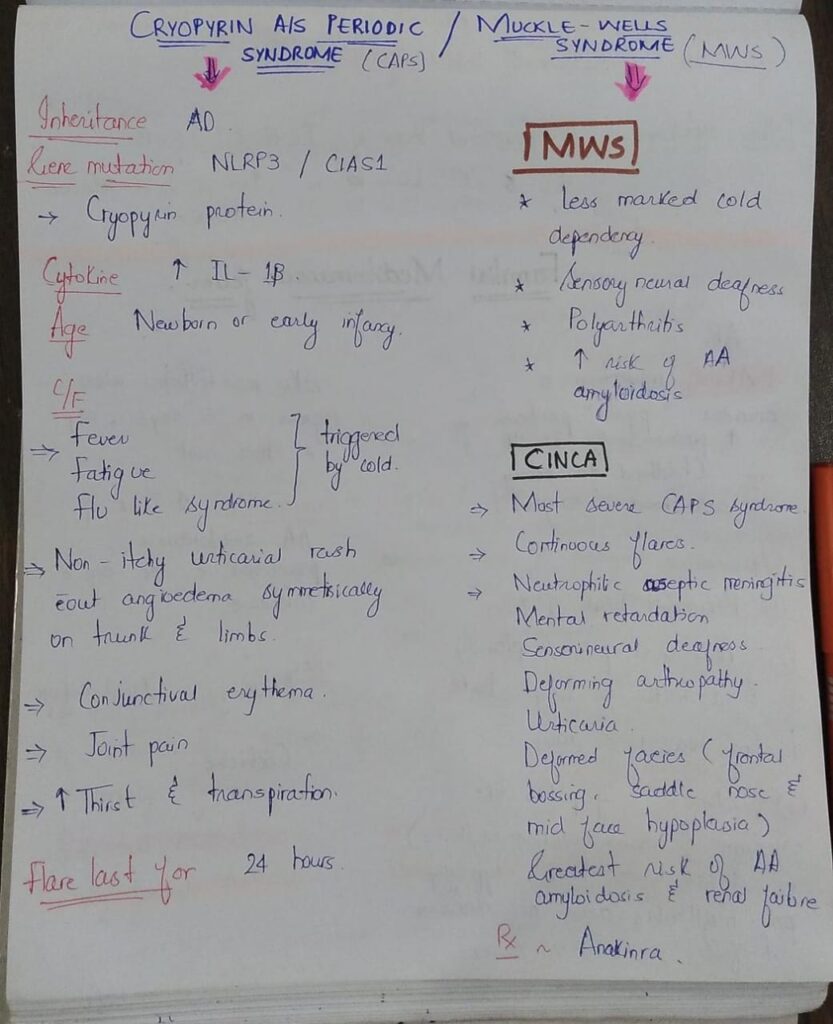 CRYOPYRIN A/S PERIODIC / MUCKLE-WELLS
SYNDROME (CAPS) SYNDROME (MWS)
Inheritance AD
Gene mutation NLRP3 / CIAS1
→ Cryopyrin protein.
Cytokine ↑ IL-1β
Age Newborn or early infancy.
C/F
⇒ Fever
Fatigue
Flu like syndrome.
triggered
by cold.
⇒ Non-itchy urticarial rash
c̄out angioedema symmetrically
on trunk & limbs.
⇒ Conjunctival erythema.
⇒ Joint pain
⇒ ↑ Thirst & transpiration.
Flare last for 24 hours.
MWS
* Less marked cold
dependency.
* Sensory neural deafness
* Polyarthritis
* ↑ risk of AA
amyloidosis
CINCA
⇒ Most severe CAPS syndrome.
⇒ Continuous flares.
⇒ Neutrophilic aseptic meningitis
Mental retardation
Sensorineural deafness.
Deforming arthropathy.
Urticaria.
Deformed facies (frontal
bossing, saddle nose &
mid face hypoplasia)
Greatest risk of AA
amyloidosis & renal failure
Rx ~ Anakinra.